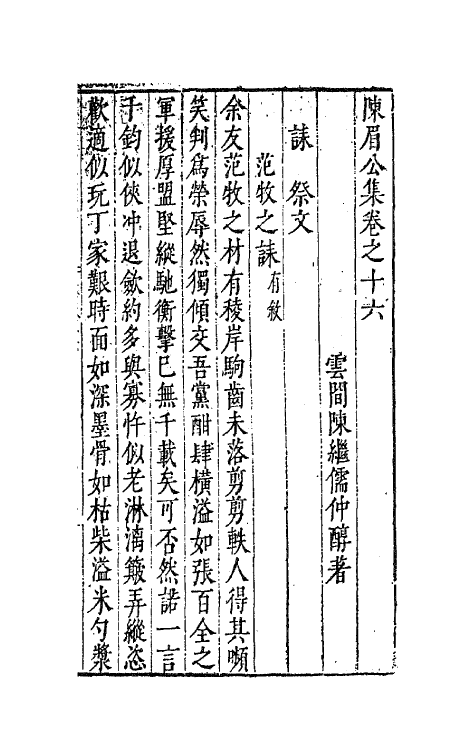 陳眉公集卷之十六
雲間陳繼儒仲醇著
誄 祭文
范牧之誄有敘
余友范牧之材有稜岸駒齒未落剪剪軼人得其嚬
笑判為榮辱然獨傾交吾黨酣肆橫溢如張百全之
軍援厚盟堅縱馳衡擊已無千載矣可否然諾一言
千鈞似俠冲退歛約多與寡忤似老淋漓簸弄縱恣
歡適似玩丁家艱時面如深墨骨如枯柴溢米勺漿